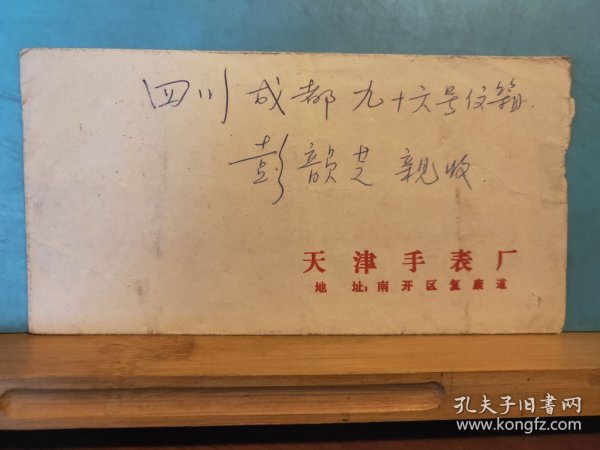 四川成都九十六号信箱
彭韻芝 親收
天津手表厂
地 址：南开区复康道
孔夫子旧书网
www.kongfz.com